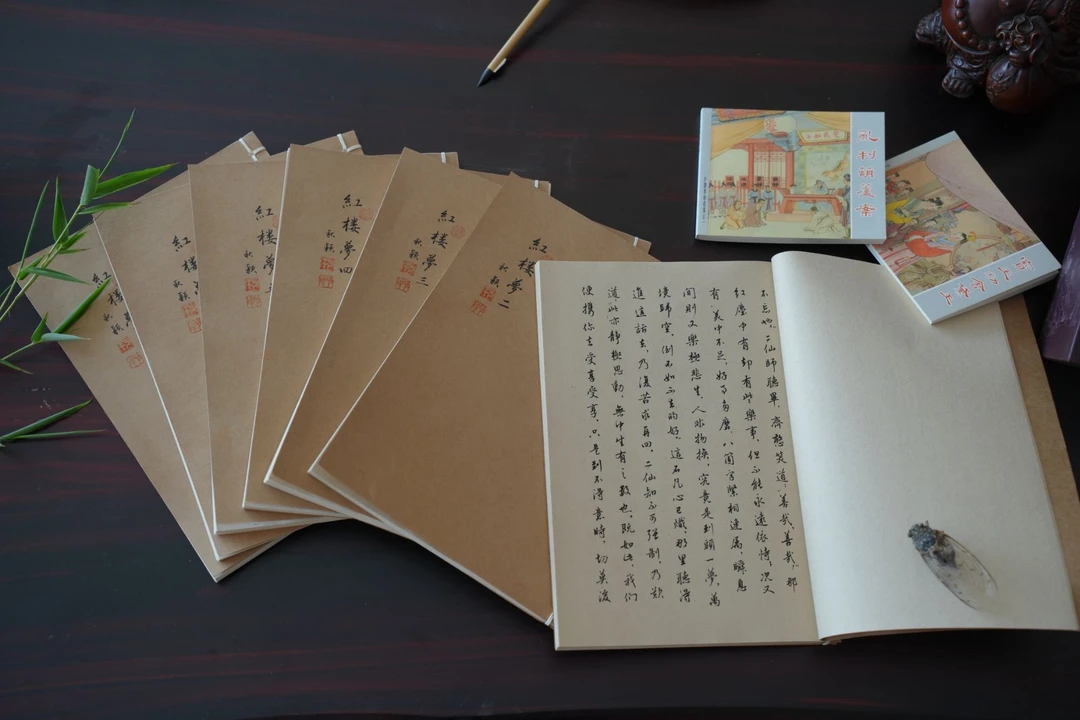 紅樓夢
秋穎
紅樓夢
秋穎
紅樓夢五
秋穎
紅樓夢四
秋穎
紅樓夢三
秋穎
紅樓夢二
秋穎
不忘也。二仙師聽畢，齊憨笑道：善哉，善哉，那
紅塵中有却有些樂事，但不能永遠依恃；次又
有美中不足，好事多魔，八箇字緊相連屬，瞬息
間則又樂極悲生，人非物換，究竟是到頭一夢，萬
境歸空，倒不如不去的好。這石凡心已熾，那里聽得
進這話去，乃復苦求再四。二仙知不可强制，乃歎
道此亦靜極思動，無中生有之數也。既如此，我們
便携你去受享受享，只是到不得意時，切莫後
亂判葫蘆案